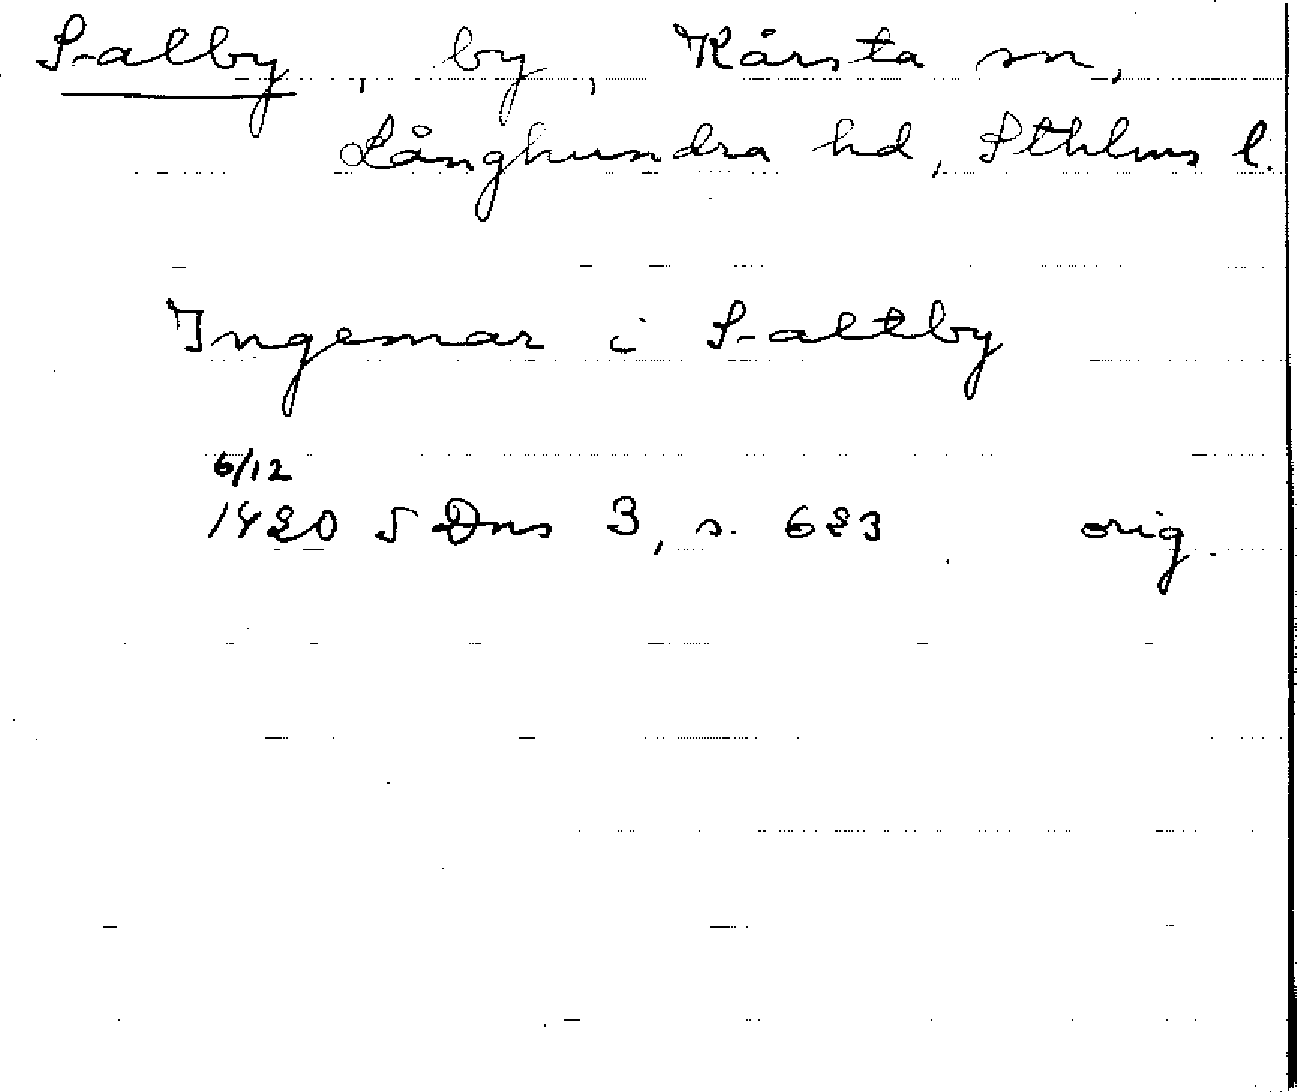 Salby, by, Kårsta sn,
Långhundra hd, Sthlms l.
Ingemar i Saltby
6/12
1420 SDns 3, s. 623 orig.